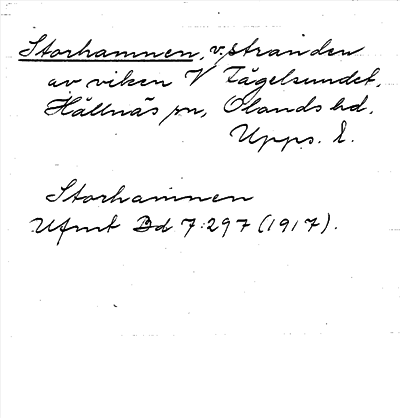 Storhamnen, v. stranden
av viken V Fågelsundet,
Hållnäs sn, Olands hd,
Upps. l.
Storhamnen
Ufmt Bd 7:297 (1917).